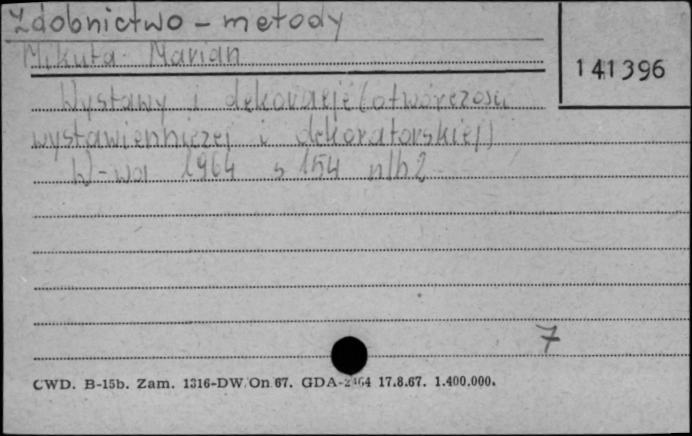 Zdobnictwo – metody
Mikuta Marian
141396
Wystawy i dekoracje (o twórczości
wystawienniczej i dekoratorskiej)
W-wa 1964 s 154 nlb 2
7
CWD. B-15b. Zam. 1316-DW. On 67. GDA-2464 17.8.67. 1.400.000.